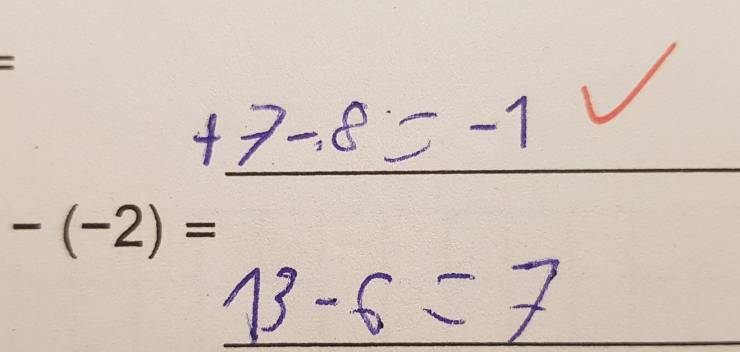 =
+7-8=-1
-(-2)=
13-6=7